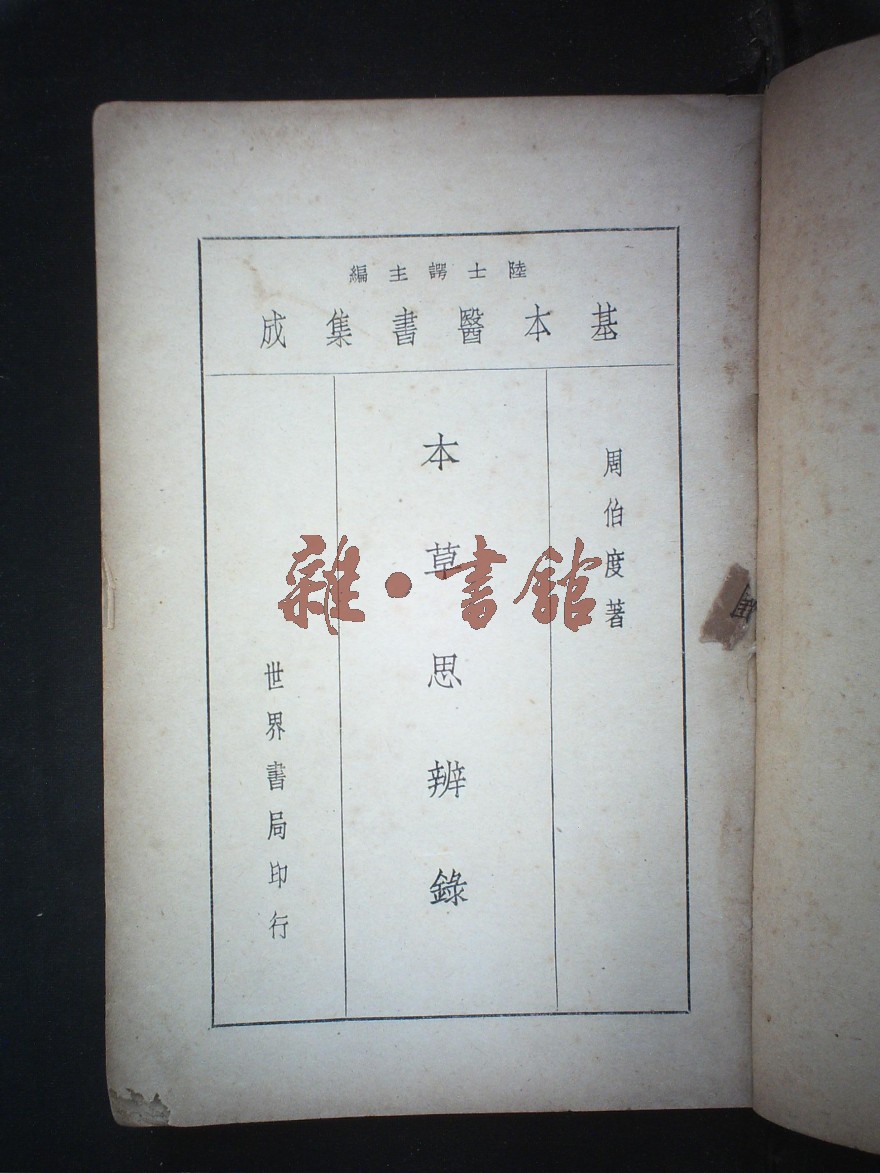 陸士諤主編
基本醫書集成
周伯度著
本草思辨錄
世界書局印行
雜·書館